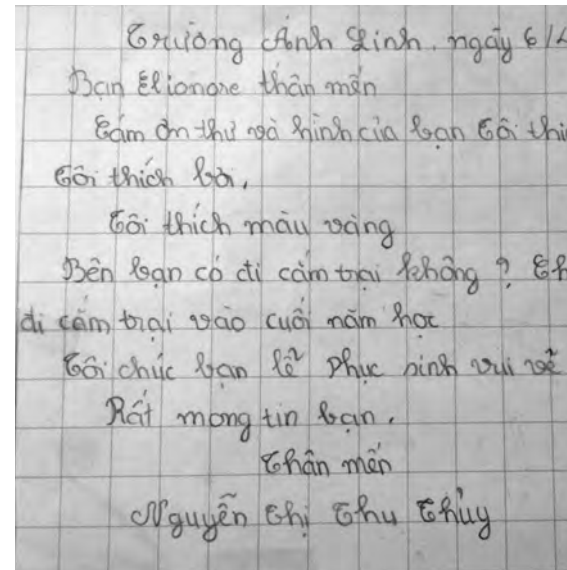 Trường Ánh Linh. ngày 6/4
Bạn Elionore thân mến
Cám ơn thư và hình của bạn Tôi thí
Tôi thích bơi.
Tôi thích màu vàng
Bên bạn có đi cắm trại không ? Ch
đi cắm trại vào cuối năm học
Tôi chúc bạn lễ Phục sinh vui vẻ
Rất mong tin bạn.
Thân mến
Nguyễn Thị Thu Thủy